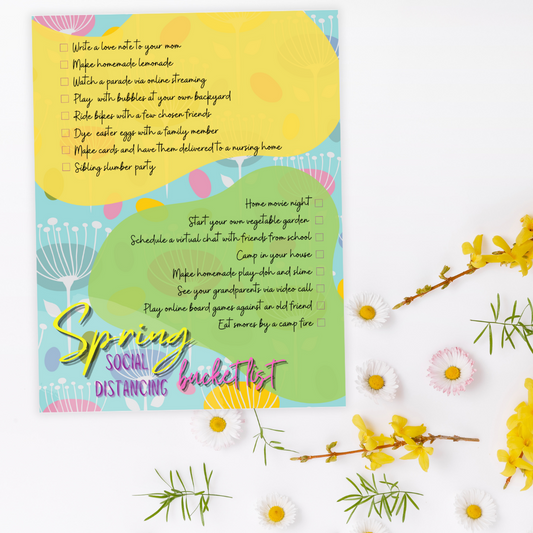 Write a love note to your mom
Make homemade lemonade
Watch a parade via online streaming
Play with bubbles at your own backyard
Ride bikes with a few chosen friends
Dye easter eggs with a family member
Make cards and have them delivered to a nursing home
Sibling slumber party
Home movie night
Start your own vegetable garden
Schedule a virtual chat with friends from school
Camp in your house
Make homemade play-doh and slime
See your grandparents via video call
Play online board games against an old friend
Eat smores by a camp fire
Spring
SOCIAL
DISTANCING bucket list